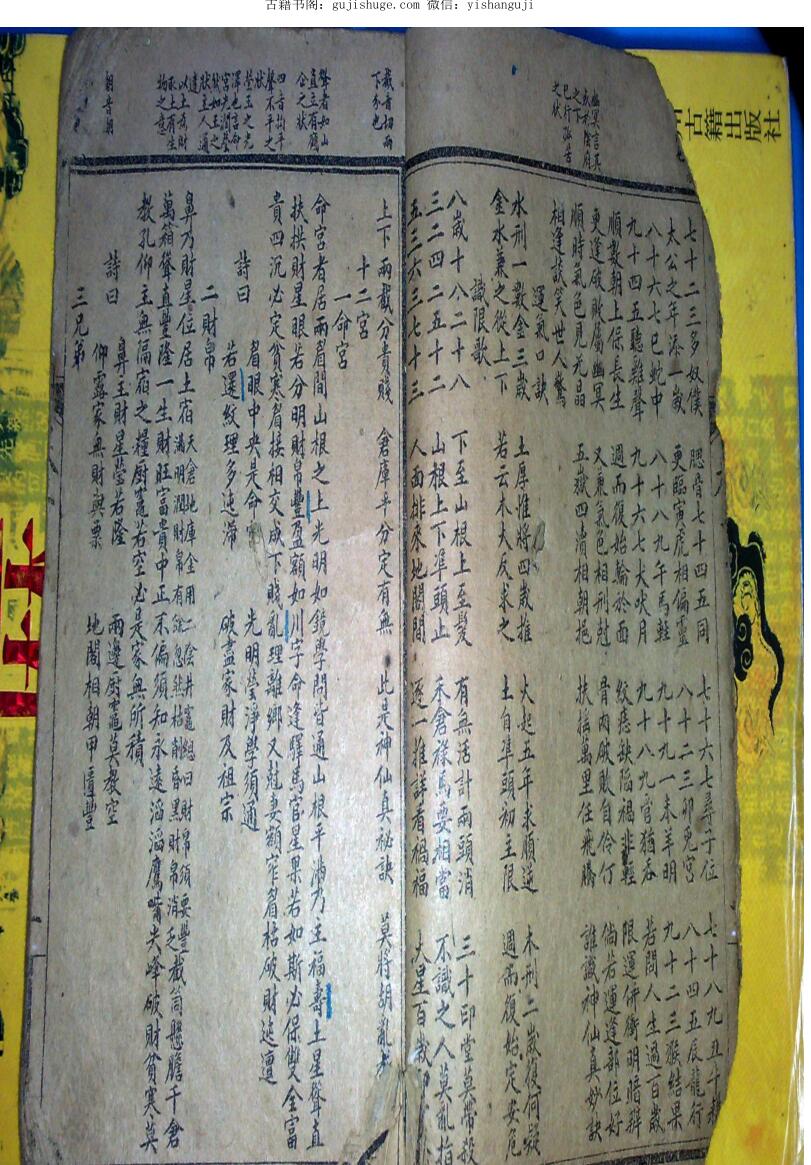 古籍书阁：gujishuge.com 微信：yishanguji
古籍出版社
幽冥言其
之下
已行
之状
七十二三多奴僕 腮骨七十四五同 七十六七尋子位 七十八九丑牛耕
太公之年添一歲 更臨寅虎相偏靈 八十二三卯兔宮 八十四五辰龍行
八十六七巳蛇中 八十八九午馬輕 九十九一未羊明 九十二三猴結果
九十四五聽雞聲 九十六七犬吠月 九十八九宮猶吞 若問人生過百歲
順數朝上保長生 週而復始輪於面 紋痣缺陷禍非輕 限運併衝明暗辨
更逢破敗屬幽冥 又兼氣色相刑尅 骨肉破敗自伶仃 倘若運逢部位好
順時氣色見光晶 五嶽四瀆相朝挹 扶搖萬里任飛騰 誰識神仙真妙訣
相逢談笑世人驚
運氣口訣
水刑一數金三歲 土厚惟將四歲推 火起五年求順逆 木刑二歲復何疑
金水兼之從上下 若云水火反求之 土自準頭初主限 週而復始定安危
識限歌
八歲十八二十八 下至山根上至髮 有無活計兩頭消 三十印堂莫帶殺
三二四二五十二 山根上下準頭止 禾倉祿馬要相當 不識之人莫亂指
五三六三七十三 人面排來地閣間 逐一推詳看禍福 火星百歲印
截者切兩
下分也
聲者如山
直主有
仝之状
四者均平
聲不平之
状
瑩玉之光
潔也言命
宮光潤瑩
然如玉之
状主人通
達
以土為財
承土有生
物之意
朝者朝
上下兩截分貴賤 倉庫平分定有無 此是神仙真秘訣 莫將胡亂
十二宮
一命宮
命宮者居兩眉間山根之上光明如鏡學問皆通山根平滿乃主福壽土星聳直
扶拱財星眼若分明財帛豐盈額如川字命逢驛馬官星果若如斯必保雙全富
貴四沉必定貧寒眉接相交成下賤亂理離鄉又尅妻額窄眉枯破財迍邅
詩曰 眉眼中央是命宮 光明瑩淨學須通
若還紋理多迍滯 破盡家財及祖宗
二財帛
鼻乃財星位居土宿天倉地庫金用二陰井竈總曰財帛須要豐滿明潤財帛有餘忽然枯削昏黑財帛消乏截筒懸膽千倉
萬箱聳直豐隆一生財旺富貴中正不偏須知永遠滔滔鷹嘴尖峰破財貧寒莫
教孔仰主無隔宿之糧厨竈若空必是家無所積
詩曰 鼻主財星瑩若隆 兩邊厨竈莫教空
仰露家無財與粟 地閣相朝甲匱豐
三兄弟